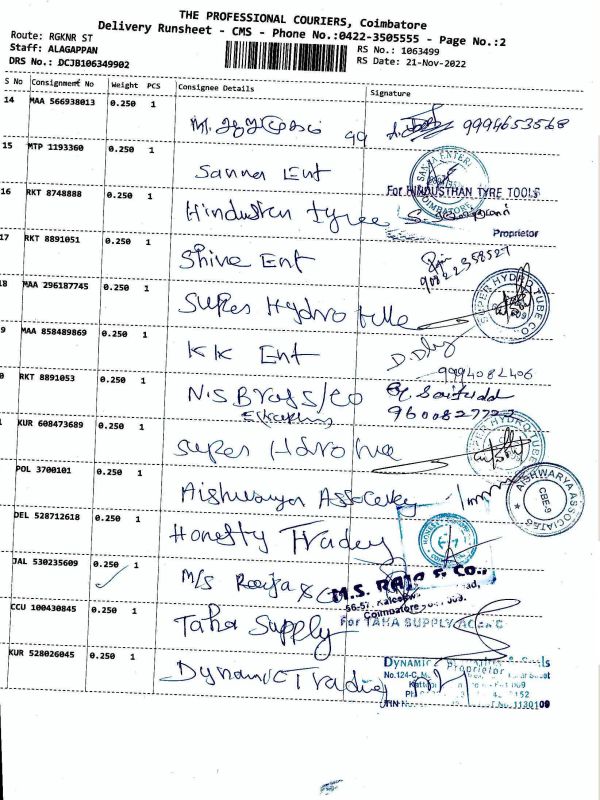 THE PROFESSIONAL COURIERS, Coimbatore
Delivery Runsheet - CMS - Phone No.:0422-3505555 - Page No.:2
Route: RGKNR ST
Staff: ALAGAPPAN
DRS No.: DCJB106349902
RS No.: 1063499
RS Date: 21-Nov-2022
S No Consignment No Weight PCS Consignee Details Signature
14 MAA 566938013 0.250 1
9994653568
15 MTP 1193360 0.250 1
Sanna Ent
16 RKT 8748888 0.250 1
Hindustan tyree
For HINDUSTHAN TYRE TOOLS
Proprietor
17 RKT 8891051 0.250 1
Shine Ent
8 MAA 296187745 0.250 1
Super Hydro tube
SUPER HYDRO TUBE CO
9 MAA 858489869 0.250 1
KK Ent
9994082406
0 RKT 8891053 0.250 1
N.S Brass/Co
KUR 608473689 0.250 1
Super Hdro
SUPER HYDRO TUBE
POL 3700101 0.250 1
Aishwarya
AISHWARYA ASSOCIATES
CBE-9
DEL 528712618 0.250 1
Honesty Tradey
JAL 530235609 0.250 1
M/s Reeja & Co
M.S. RAJA & Co.,
Coimbatore
CCU 100430845 0.250 1
Taha Supply
For TAHA SUPPLY AGENC
KUR 528026045 0.250 1
Dynamic Trading
DYNAMIC
Proprietor
No.124-C,